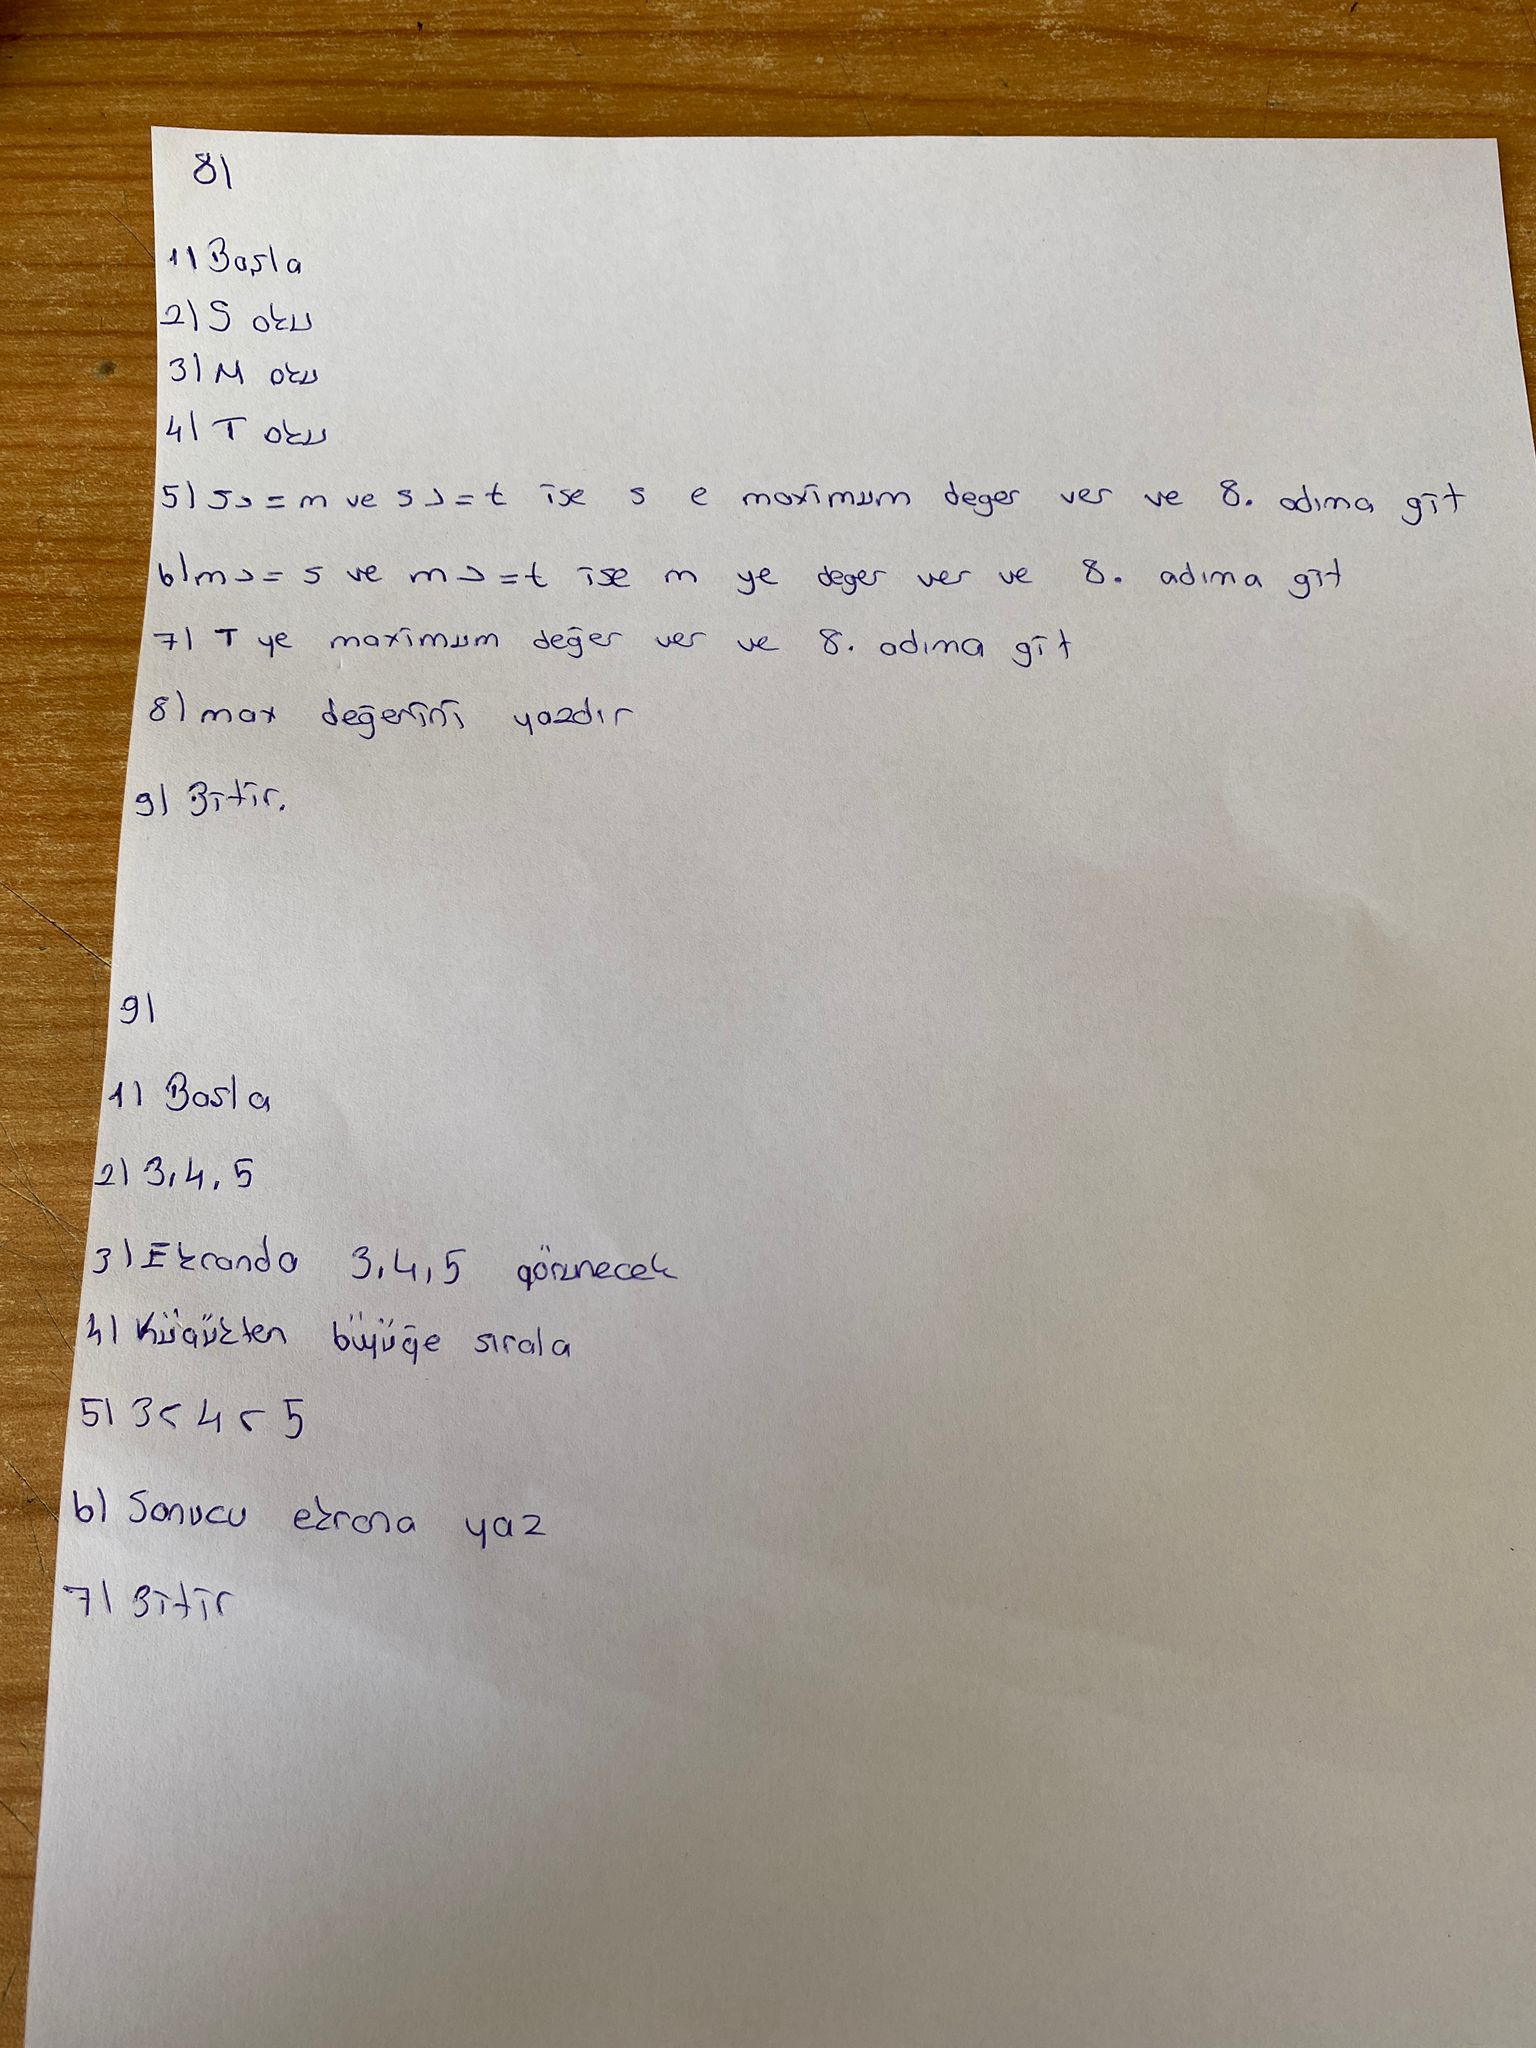 8)
1) Başla
2) S oku
3) M oku
4) T oku
5) s>=m ve s>=t ise s e maximum deger ver ve 8. adıma git
6) m>=s ve m>=t ise m ye deger ver ve 8. adıma git
7) T ye maximum değer ver ve 8. adıma git
8) max değerini yazdır
9) Bitir.
9)
1) Basla
2) 3,4,5
3) Ekranda 3,4,5 görünecek
4) Küçükten büyüğe sırala
5) 3<4<5
6) Sonucu ekrana yaz
7) Bitir